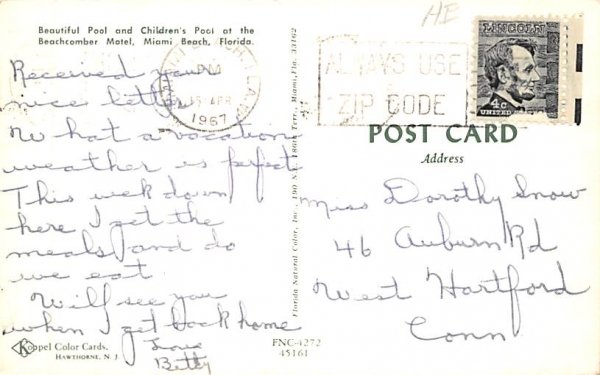 Beautiful Pool and Children's Pool at the
Beachcomber Motel, Miami Beach, Florida.
Received your
nice letter
What a vacation
weather is perfect
This week down
here I get the
meals and do
we eat.
Will see you
when I get back home
Love
Betty
Koppel Color Cards.
HAWTHORNE, N. J.
PM
15 APR
1967
ALWAYS USE
ZIP CODE
HE
LINCOLN
4c
UNITED STATES
POST CARD
Address
Miss Dorothy Snow
46 Auburn Rd
West Hartford
Conn
Florida Natural Color, Inc., 190 N.E. Terr., Miami, Fla. 33162
FNC-4272
45161